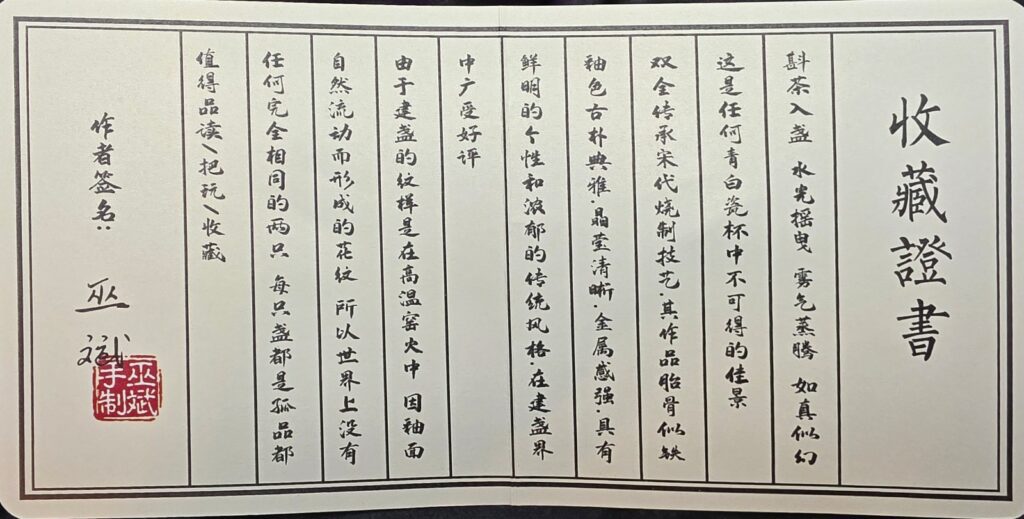 收藏證書
斟茶入盏 水光摇曳 雾气蒸腾 如真似幻
这是任何青白瓷杯中不可得的佳景
双全传承宋代烧制技艺·其作品胎骨似铁
釉色古朴典雅·晶莹清晰·金属感强·具有
鲜明的个性和浓郁的传统风格·在建盏界
中广受好评
由于建盏的纹样是在高温窑火中 因釉面
自然流动而形成的花纹 所以世界上没有
任何完全相同的两只 每只盏都是孤品都
值得品读\把玩\收藏
作者签名:
巫斌
巫斌手制